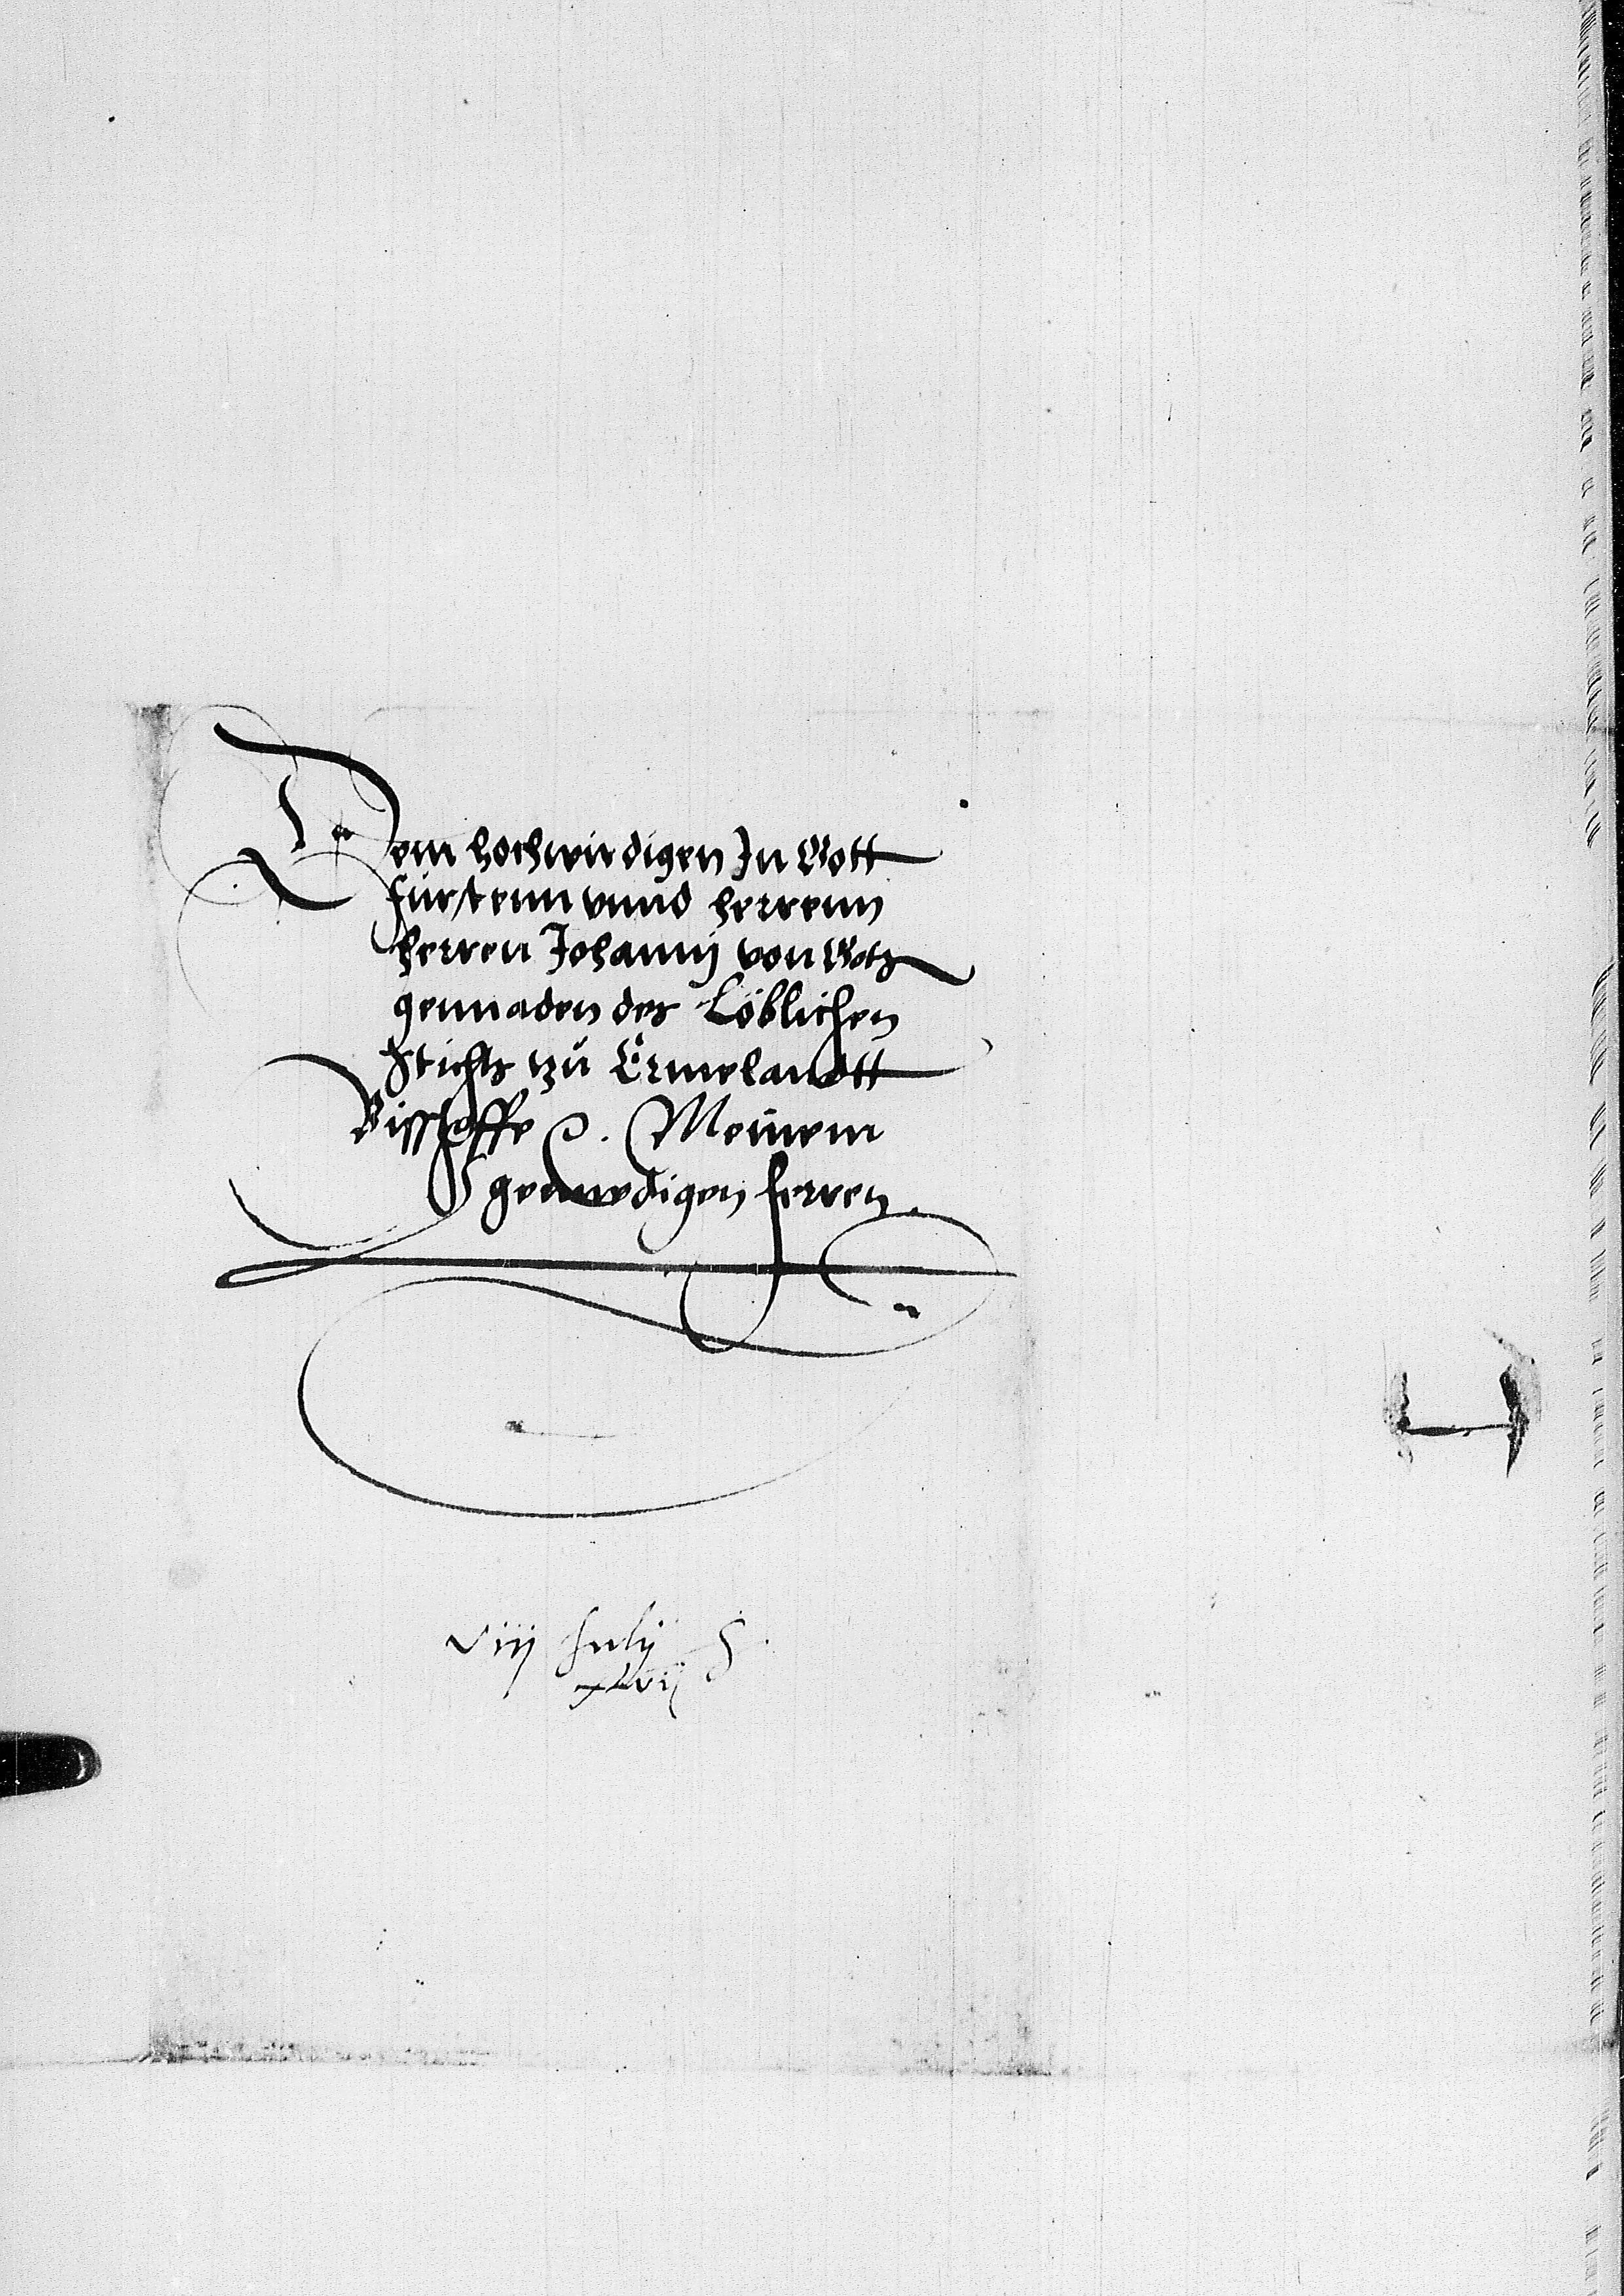 Dem hochwirdigen In Gott
fürstenn vnnd herrenn
herren Johannj von Gots
gennaden des Löblichen
Stichts tzu Ermelandtt
Bisschoffe ɔ. Meinem
gennedigen herren.
viij Julij
xlvij